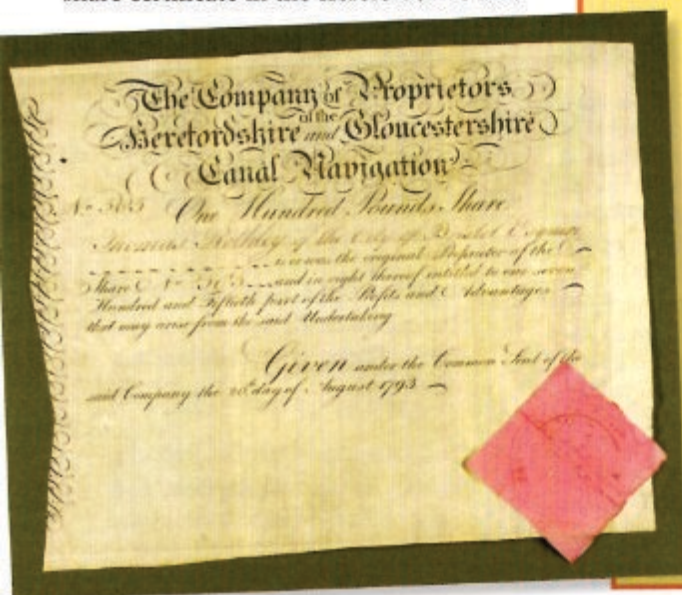 share certificate in the
The Company of Proprietors
of the
Herefordshire and Gloucestershire
Canal Navigation
No. 503 One Hundred Pounds Share
of the City of Bristol Esquire
is or was the original Proprietor of the
Share No. 503 and in right thereof entitled to one seven
Hundred and Fiftieth part of the Profits and Advantages
that may arise from the said Undertaking
Given under the Common Seal of the
said Company the 20th day of August 1793